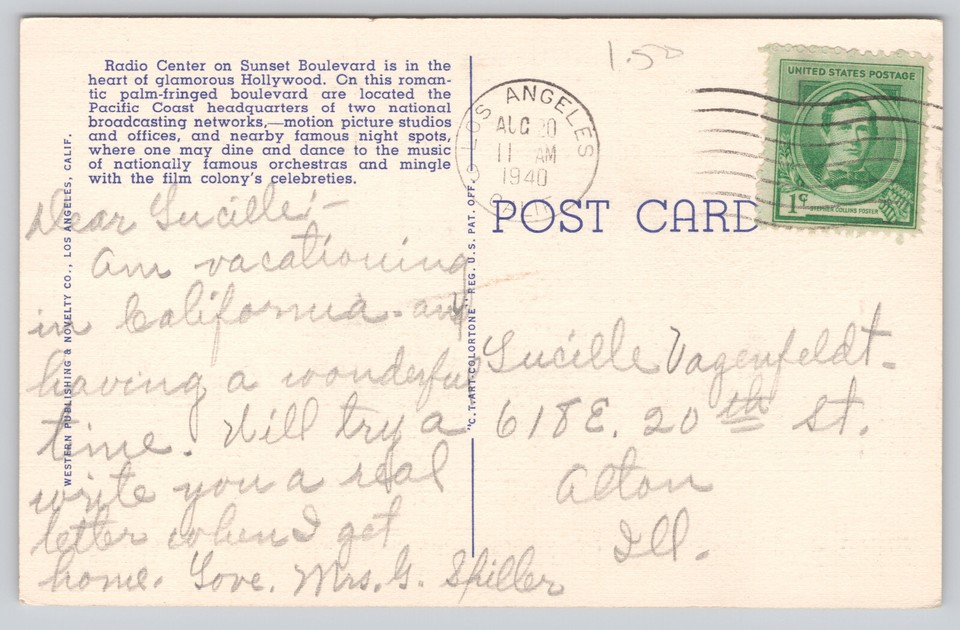 1.50
Radio Center on Sunset Boulevard is in the
heart of glamorous Hollywood. On this roman-
tic palm-fringed boulevard are located the
Pacific Coast headquarters of two national
broadcasting networks,—motion picture studios
and offices, and nearby famous night spots,
where one may dine and dance to the music
of nationally famous orchestras and mingle
with the film colony's celebreties.
WESTERN PUBLISHING & NOVELTY CO., LOS ANGELES, CALIF.
Dear Lucille:-
Am vacationing
in California and
having a wonderful
time. Will try a
write you a real
letter when I get
home. Love. Mrs. G. Shiller
"C.T. ART-COLORTONE" REG. U.S. PAT. OFF.
LOS ANGELES
AUG 20
11 AM
1940
CALIF
UNITED STATES POSTAGE
1¢
STEPHEN COLLINS FOSTER
POST CARD
Lucille Vagenfeldt-
618 E. 20 th St.
Alton
Ill.